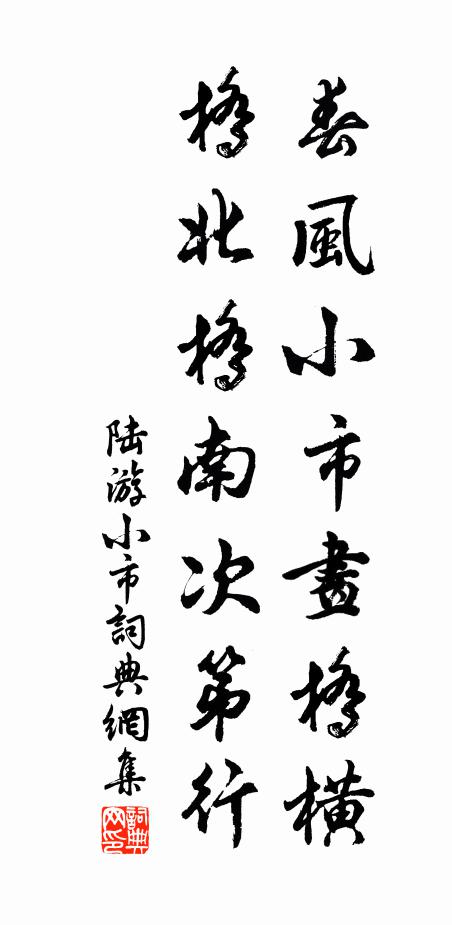 春風小市畫橋橫
橋北橋南次第行
陸游小市詞典網集
詞典网印